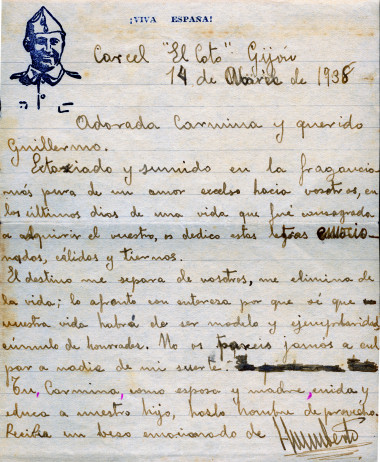 ¡VIVA ESPAÑA!
Carcel "El Coto" Gijón
14 de de 1938
Adorada Carmina y querido
Guillermo.
Extasiado y sumido en la fragancia
más pura de un amor excelso hacia vosotros, en
los últimos dias de una vida que fué consagrada
a adquirir el vuestro, os dedico estas letras emocio
nadas, cálidas y tiernas.
El destino me separa de vosotros, me elimina de
la vida; lo afronto con entereza por que sé que
vuestra vida habrá de ser modelo y ejemplaridad,
cúmulo de honradez. No os pareis jamás a cul
par a nadie de mi suerte.
Tu, Carmina, como esposa y madre, cuida y
educa a nuestro hijo, hazlo hombre de provecho.
Reciba un beso emocionado de Humberto